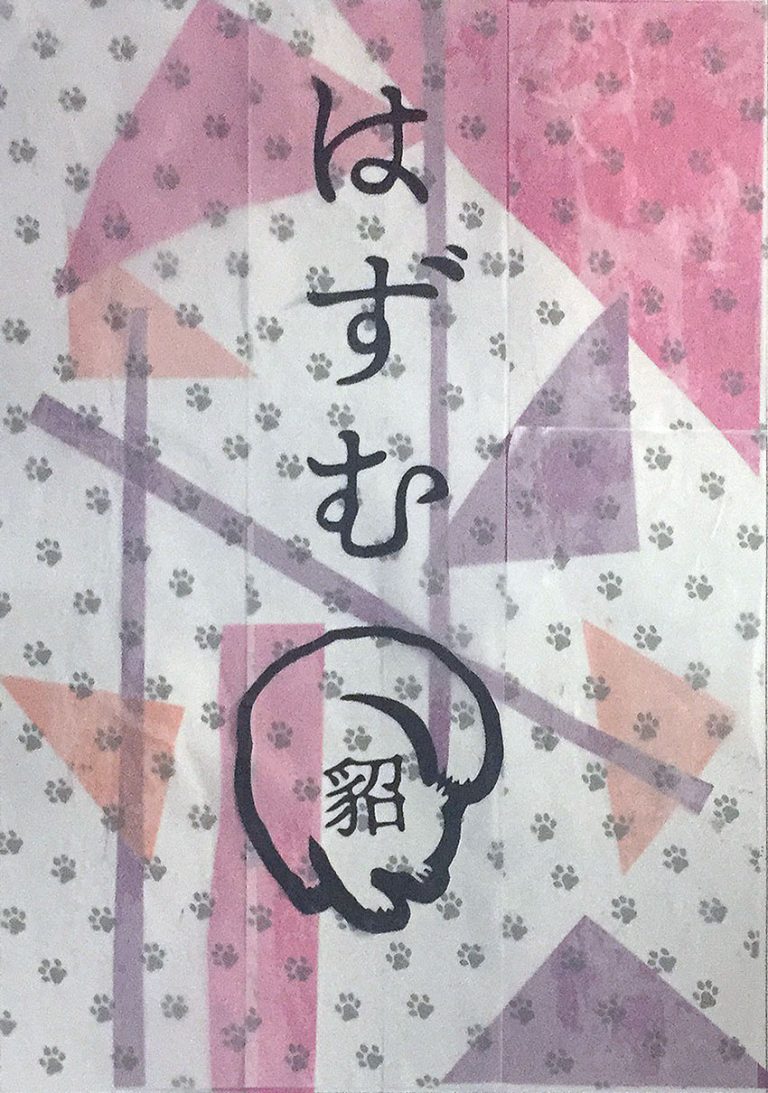 はずむ
貂